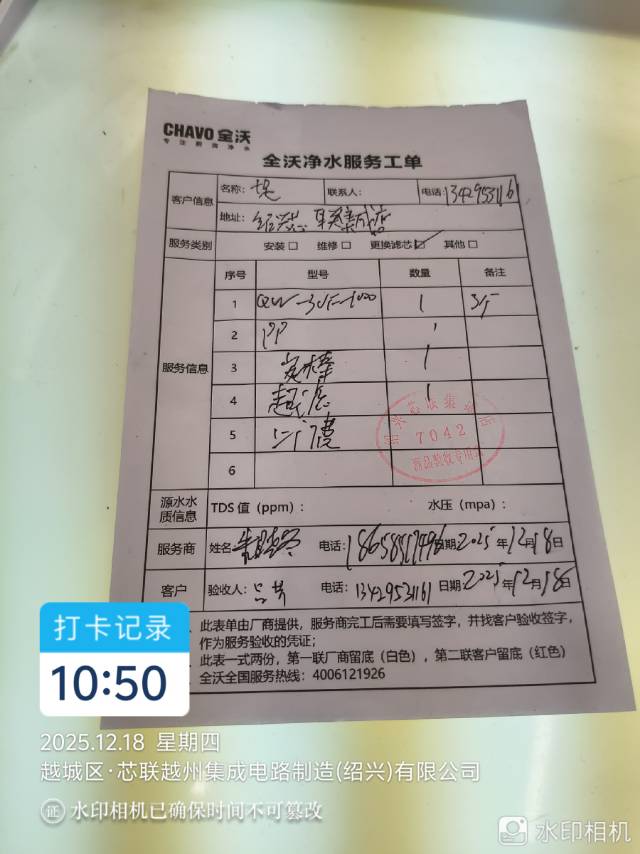 CHAVO 全沃
专注厨房净水
全沃净水服务工单
客户信息 名称: 联系人: 电话: 13429531161
地址:
服务类别 安装□ 维修□ 更换滤芯☑ 其他□
服务信息 序号 型号 数量 备注
1 1
2 PP 1
3 1
4 1
5
6
7042
商品验收专用章
源水水质信息 TDS 值（ppm）: 水压（mpa）:
服务商 姓名 电话: 日期 2025年12月18日
客户 验收人: 电话: 13429531161 日期 2025年12月18日
此表单由厂商提供，服务商完工后需要填写签字，并找客户验收签字，
作为服务验收的凭证；
此表一式两份，第一联厂商留底（白色），第二联客户留底（红色）
全沃全国服务热线: 4006121926
打卡记录
10:50
2025.12.18 星期四
越城区·芯联越州集成电路制造(绍兴)有限公司
证 水印相机已确保时间不可篡改
水印相机